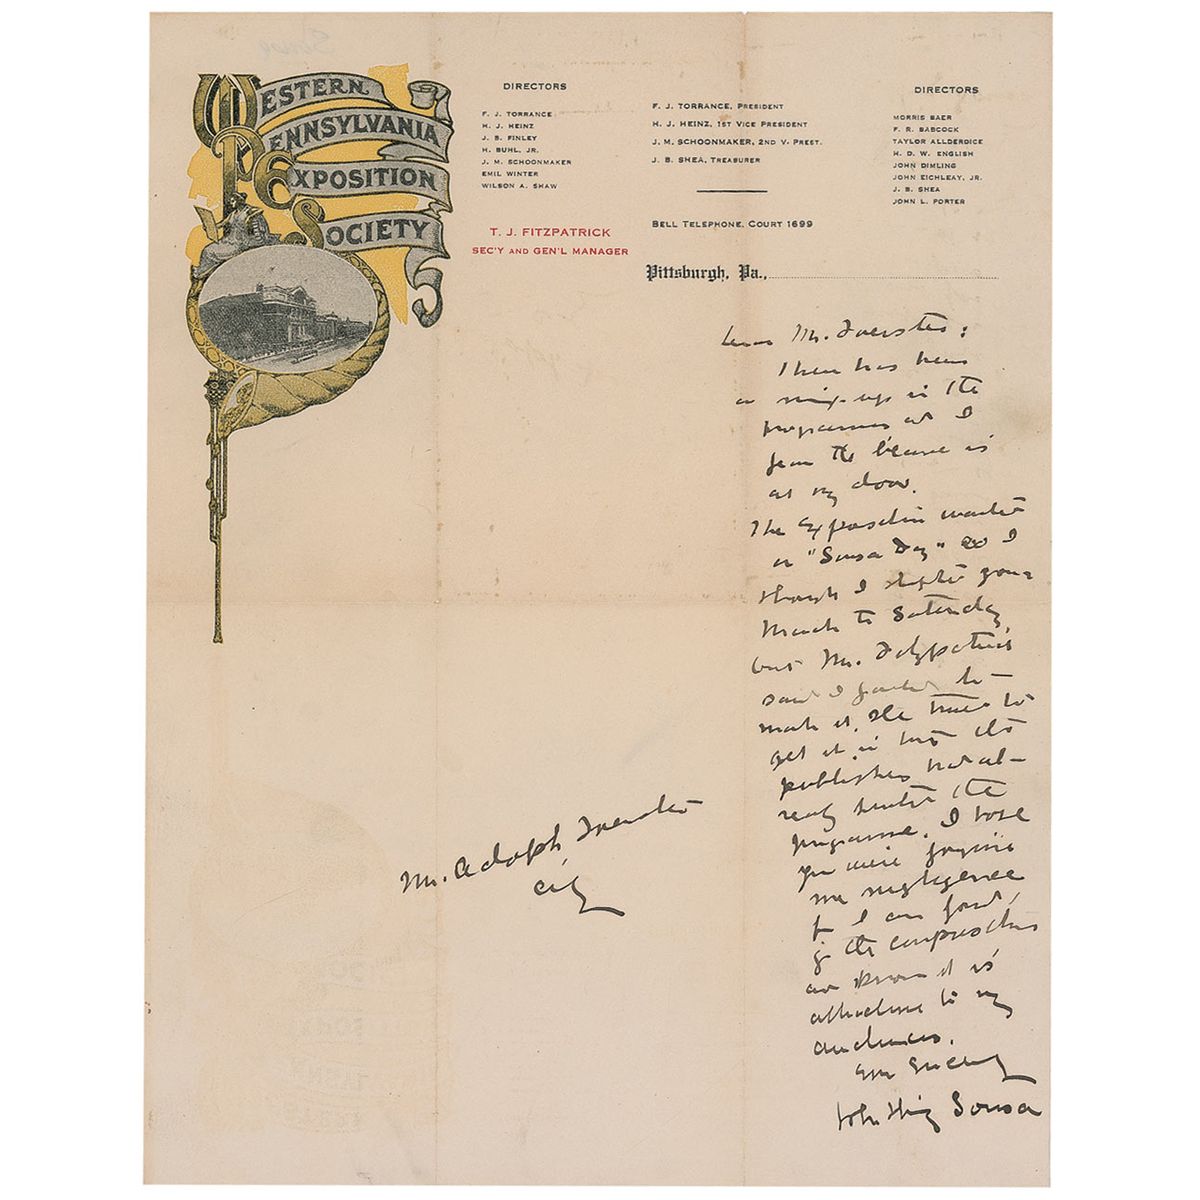 WESTERN
PENNSYLVANIA
EXPOSITION
SOCIETY
DIRECTORS
F. J. TORRANCE
H. J. HEINZ
J. B. FINLEY
H. BUHL, JR.
J. M. SCHOONMAKER
EMIL WINTER
WILSON A. SHAW
T. J. FITZPATRICK
SEC'Y AND GEN'L MANAGER
F. J. TORRANCE, PRESIDENT
H. J. HEINZ, 1ST VICE PRESIDENT
J. M. SCHOONMAKER, 2ND V. PREST.
J. B. SHEA, TREASURER
BELL TELEPHONE, COURT 1699
DIRECTORS
MORRIS BAER
F. R. BABCOCK
TAYLOR ALLDERDICE
H. D. W. ENGLISH
JOHN DIMLING
JOHN EICHLEAY, JR.
J. B. SHEA
JOHN L. PORTER
Pittsburgh, Pa.,
Dear Mr. Foerster:
There has been
a mix-up in the
programmes and I
fear the blame is
at my door.
The Exposition wanted
a "Sousa Day" so I
thought I shifted your
March to Saturday,
but Mr. Fitzpatrick
said I failed to
mark it. He tried to
get it in but the
publishers had al-
ready printed the
programme. I trust
you will forgive
my negligence
for I am fond
of the composition
and know it is
attractive to my
audiences.
Sincerely
John Philip Sousa
Mr. Adolph Foerster
City